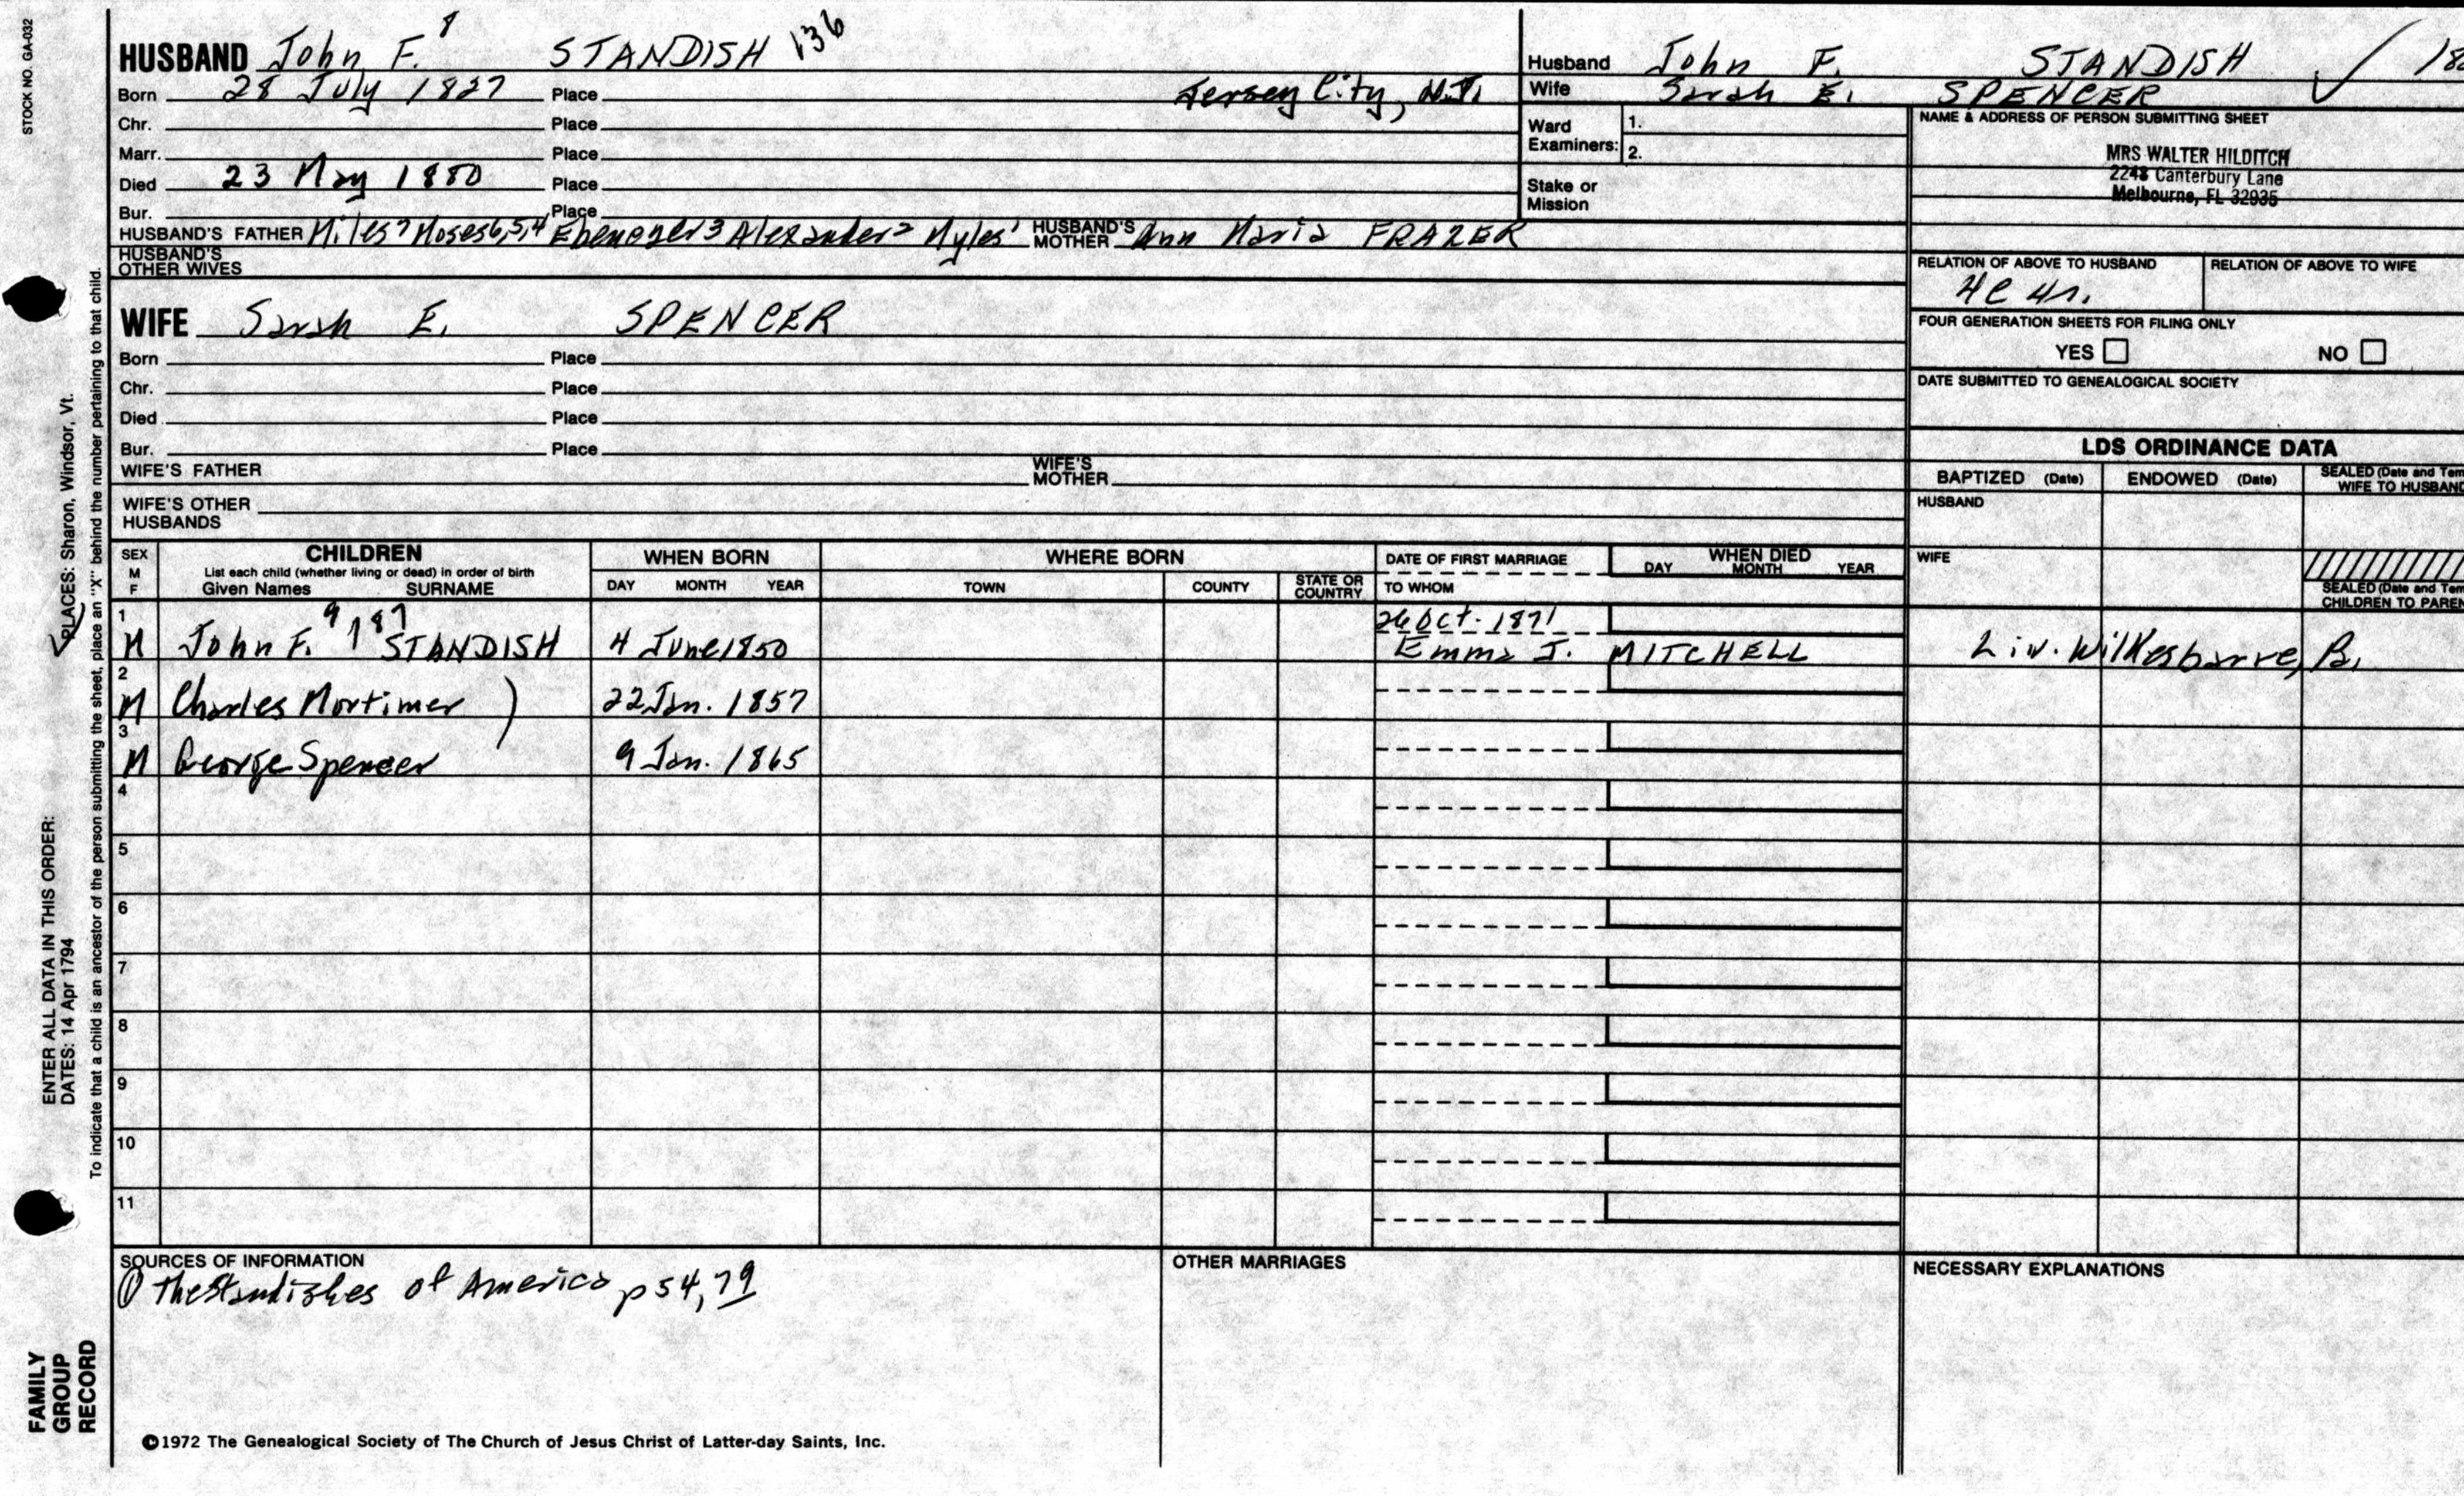 STOCK NO. GA-032
HUSBAND John F. 8 STANDISH 136
Born 28 July 1827 Place Jersey City, N.J.
Chr. Place
Marr. Place
Died 23 May 1880 Place
Bur. Place
HUSBAND'S FATHER Miles7 Moses6,5,4 Ebenezer3 Alexander2 Myles1 HUSBAND'S MOTHER Ann Maria FRAZER
HUSBAND'S OTHER WIVES
WIFE Sarah E. SPENCER
Born Place
Chr. Place
Died Place
Bur. Place
WIFE'S FATHER WIFE'S MOTHER
WIFE'S OTHER HUSBANDS
Husband John F. STANDISH
Wife Sarah E. SPENCER
Ward Examiners: 1.
2.
Stake or Mission
NAME & ADDRESS OF PERSON SUBMITTING SHEET
MRS WALTER HILDITCH
2248 Canterbury Lane
Melbourne, FL 32935
RELATION OF ABOVE TO HUSBAND RELATION OF ABOVE TO WIFE
FOUR GENERATION SHEETS FOR FILING ONLY
YES NO
DATE SUBMITTED TO GENEALOGICAL SOCIETY
LDS ORDINANCE DATA
BAPTIZED (Date) ENDOWED (Date) SEALED (Date and Tem
WIFE TO HUSBAND
HUSBAND
WIFE
SEALED (Date and Tem
CHILDREN TO PAREN
SEX M F CHILDREN WHEN BORN WHERE BORN DATE OF FIRST MARRIAGE WHEN DIED
List each child (whether living or dead) in order of birth
Given Names SURNAME DAY MONTH YEAR TOWN COUNTY STATE OR COUNTRY TO WHOM DAY MONTH YEAR
1 M John F. 9 187 STANDISH 4 June 1850 26 Oct. 1871
Emma J. MITCHELL Liv. Wilkesbarre, Pa.
2 M Charles Mortimer ) 22 Jan. 1857
3 M George Spencer 9 Jan. 1865
4
5
6
7
8
9
10
11
SOURCES OF INFORMATION
① The Standishes of America p 54, 79
OTHER MARRIAGES
NECESSARY EXPLANATIONS
©1972 The Genealogical Society of The Church of Jesus Christ of Latter-day Saints, Inc.
FAMILY
GROUP
RECORD
ENTER ALL DATA IN THIS ORDER:
DATES: 14 Apr 1794 PLACES: Sharon, Windsor, Vt.
To indicate that a child is an ancestor of the person submitting the sheet, place an "X" behind the number pertaining to that child.